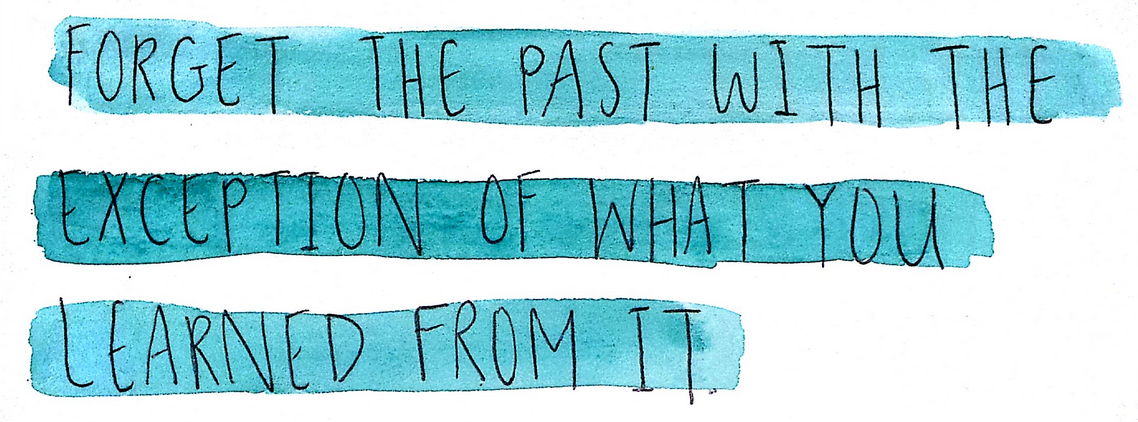 FORGET THE PAST WITH THE
EXCEPTION OF WHAT YOU
LEARNED FROM IT.